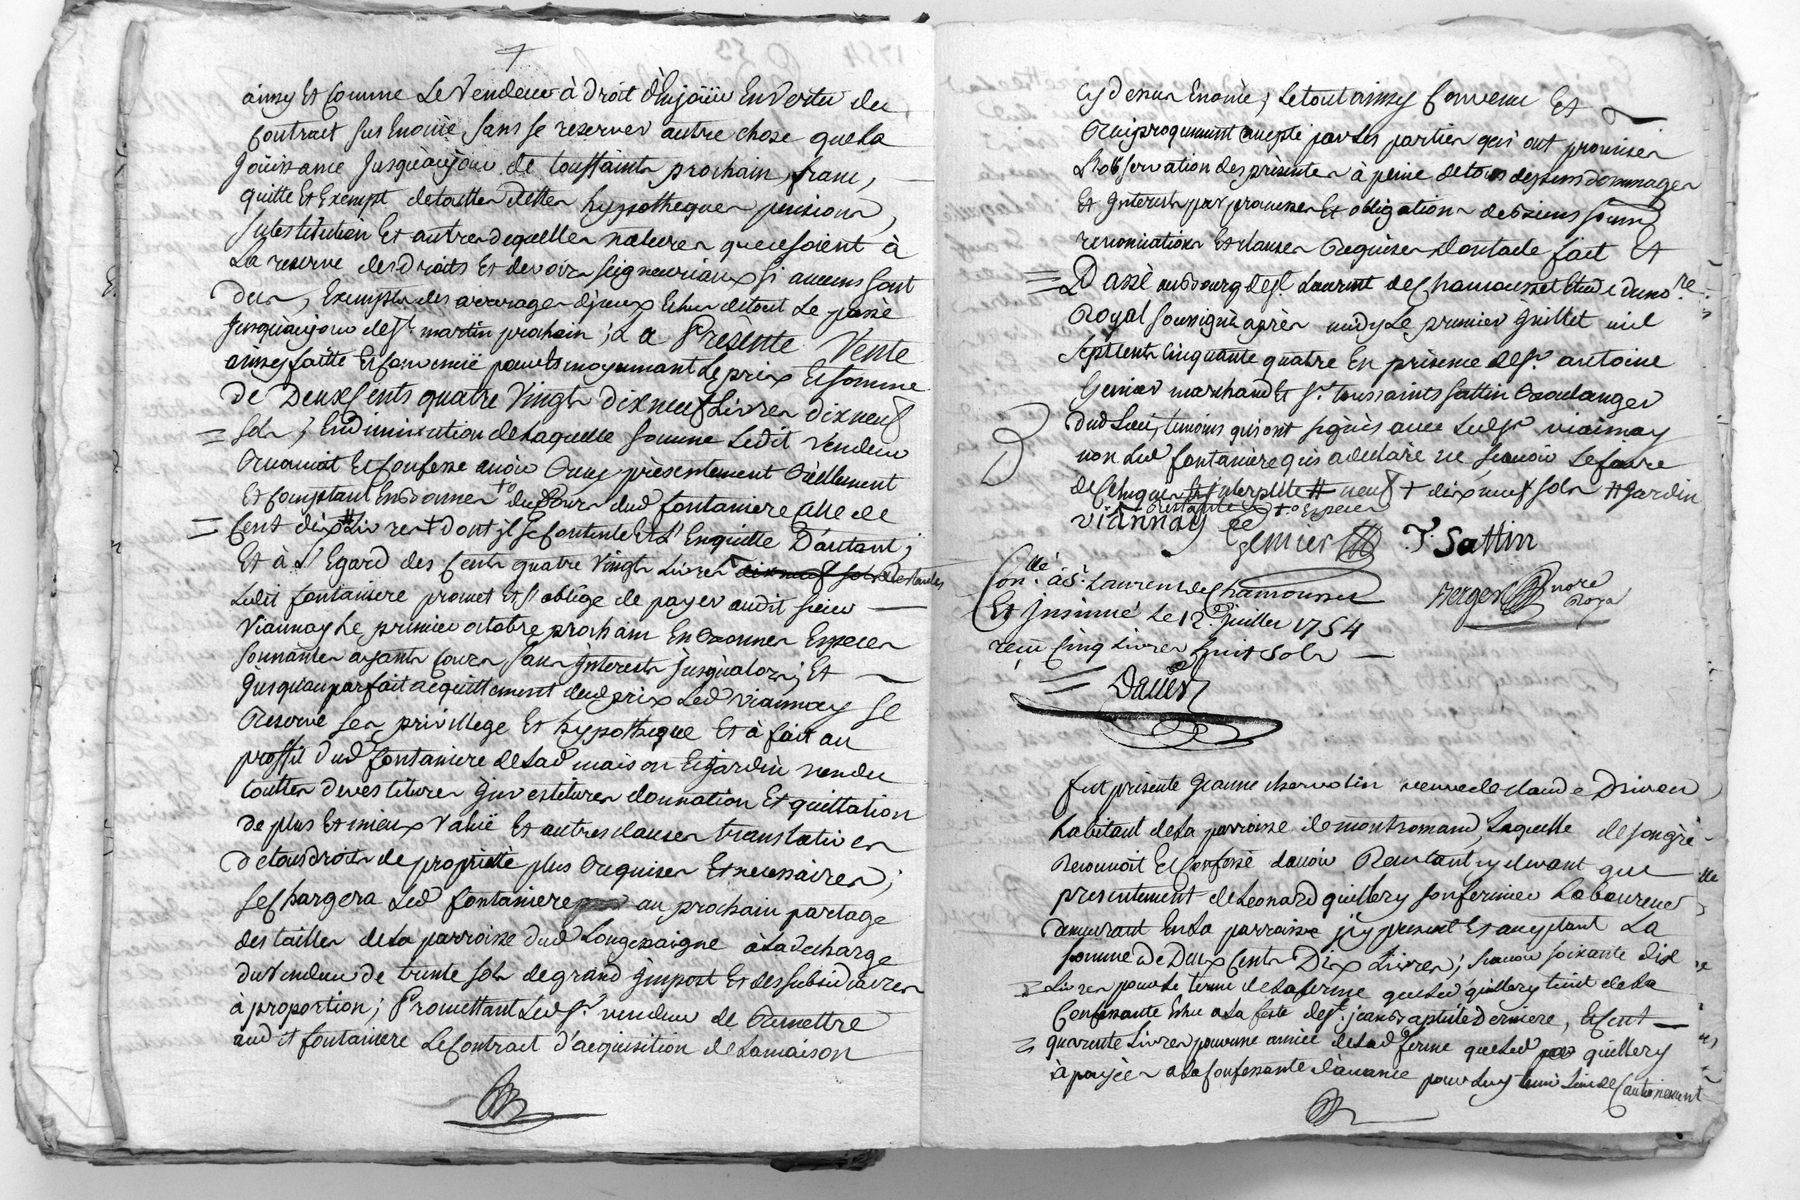 ainsy Et Comme Le Vendeur à droit d'Enjoüir En Vertu du
Contract sus Enoncé, sans se reserver autre chose que la
joüissance jusqu'au jour de toussaints prochain, franc,
quitte Et Exempt de touttes dettes hypotheques pensions,
substitution Et autres de quelles natures que ce soient à
La reserve des droits Et devoirs seigneuriaux si aucuns sont
dus, Exempts des arrerages d'jceux Echus de tout Le passé
jusqu'au jour de st martin prochain; La Presente Vente
ainsy faitte Et Convenuë pour Et moyennant Le prix Et somme
De Deux Cents quatre Vingts dix neuf Livres dix neuf
sols; En diminution de laquelle somme Ledit Vendeur
Reconnoit Et Confesse avoir Reçu présentement Réellement
Et Comptant En bonnes dud fontaniere Celle de
Cent dix Livres dont jl se Contente Et L'En quitte D'autant;
Et à L'Egard des Cents quatre Vingts Livres restantes
Ledit fontaniere promet Et s'oblige de payer audit sieur
Viannay Le premier octobre prochain En bonnes Especes
sonnantes ayants Cours sans jnterests jusqu'alors; Et
jusqu'au parfait acquittement dud prix Led Viannay se
Reserve ses privillege Et hypotheque Et à fait au
proffit dud fontaniere de Lad maison Et jardin vendu
touttes devestitures jnvestitures donnation Et quittation
de plus Et mieux Valuë Et autres clauses translatives
de tous droits de proprieté plus Requises Et necessaires;
se Chargera Led fontaniere au prochain partage
des tailles de La parroisse dud Longessaigne à La decharge
du Vendeur de trente sols de grand jmpost Et des subsidiaires
à proportion; Promettant Led sr vendeur de Remettre
audit fontaniere Le Contract d'acquisition de La maison
cy dessus Enoncé; Le tout ainsy Convenu Et
Reciproquement accepté par Les parties qui ont promises
L'observation des présentes à peine de tous depens dommages
Et jnterests par promesses Et obligations de biens soums
renonciations Et clauses Requises dont acte fait Et
Passé au bourg de st Laurent de Chamousset Etude du nore
Royal soussigné après midy Le premier juillet mil
sept cents Cinquante quatre En présence de sr antoine
Genier marchand Et sr toussaints sattin Boulanger
dud Lieu, temoins qui ont signés avec Led sr viannay
non Led fontaniere qui a declaré ne sçavoir Le faire
de Ce Enquis # neuf + dix neuf sols # jardin
restantes to Especes
viannay
Genier T. Sattin
Conllé à St Laurent de Chamousset
Et jnsinué Le 12e juillet 1754
reçu Cinq Livres huit sols
nore
Royal
Daller
fut présente jeanne veuve de claude
habitant de La parroisse de montromand, Laquelle de son gré
Reconnoit Et Confesse d'avoir Reçu tant cy devant que
presentement de Leonard guillery son fermier Laboureur
demeurant En La parroisse jcy present Et acceptant La
somme de Deux Cents Dix Livres; sçavoir soixante dix
Livres pour Le terme de La ferme que Led guillery tient de La
Confessante Echu a La feste de st jean baptiste derniere, Et Cent
quarente Livres pour une année de Lad ferme que Led guillery
à payées a La Confessante d'avance pour Luy tenir Lieu de Cautionnement